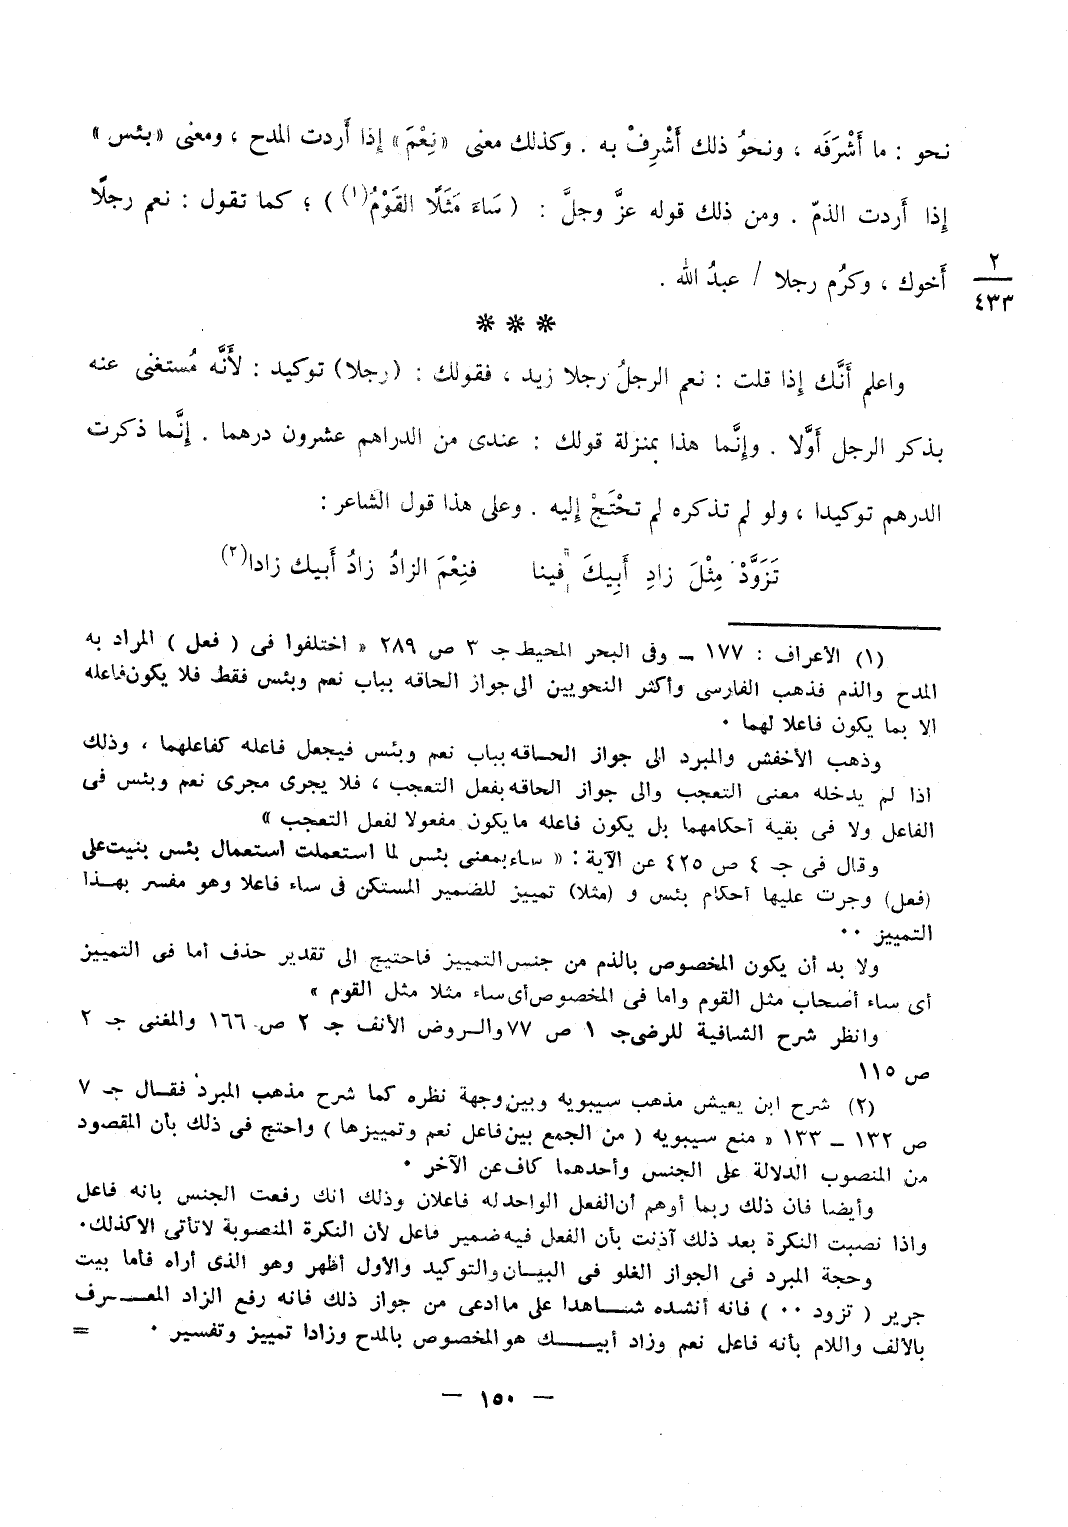 نحو : ما أَشْرَفَه ، ونحوُ ذلك أَشْرِفْ به . وكذلك معنى «نِعْمَ» إذا أَردت المدح ، ومعنى «بئس»
إذا أَردت الذمّ . ومن ذلك قوله عزَّ وجلَّ : ( سَاءَ مَثَلًا القَوْمُ(١) ) ؛ كما تقول : نعم رجلًا
٢
٤٣٣
أَخوك ، وكرُم رجلا / عبدُ الله .
***
واعلم أَنَّك إذا قلت : نعم الرجلُ رجلا زيد ، فقولك : (رجلا) توكيد : لأَنَّه مُستغنى عنه
بذكر الرجل أَوَّلا . وإنَّما هذا بمنزلة قولك : عندى من الدراهم عشرون درهما . إنَّما ذكرت
الدرهم توكيدا ، ولو لم تذكره لم تحْتَجْ إليه . وعلى هذا قول الشاعر :
تَزَوَّدْ مِثْلَ زادِ أَبِيكَ فينا فنِعْمَ الزادُ زادُ أَبيك زادا(٢)
(١) الأعراف : ١٧٧ ــ وفى البحر المحيط جـ ٣ ص ٢٨٩ « اختلفوا فى ( فعل ) المراد به
المدح والذم فذهب الفارسى وأكثر النحويين الى جواز الحاقه بباب نعم وبئس فقط فلا يكون فاعله
الا بما يكون فاعلا لهما .
وذهب الأخفش والمبرد الى جواز الحاقه بباب نعم وبئس فيجعل فاعله كفاعلهما ، وذلك
اذا لم يدخله معنى التعجب والى جواز الحاقه بفعل التعجب ، فلا يجرى مجرى نعم وبئس فى
الفاعل ولا فى بقية أحكامهما بل يكون فاعله ما يكون مفعولا لفعل التعجب »
وقال فى جـ ٤ ص ٤٢٥ عن الآية : « ساء بمعنى بئس لما استعملت استعمال بئس بنيت على
(فعل) وجرت عليها أحكام بئس و (مثلا) تمييز للضمير المستكن فى ساء فاعلا وهو مفسر بهذا
التمييز ..
ولا بد أن يكون المخصوص بالذم من جنس التمييز فاحتيج الى تقدير حذف أما فى التمييز
أى ساء أصحاب مثل القوم واما فى المخصوص أى ساء مثلا مثل القوم »
وانظر شرح الشافية للرضى جـ ١ ص ٧٧ والروض الأنف جـ ٢ ص ١٦٦ والمغنى جـ ٢
ص ١١٥
(٢) شرح ابن يعيش مذهب سيبويه وبين وجهة نظره كما شرح مذهب المبرد فقال جـ ٧
ص ١٣٢ ــ ١٣٣ « منع سيبويه ( من الجمع بين فاعل نعم وتمييزها ) واحتج فى ذلك بأن المقصود
من المنصوب الدلالة على الجنس وأحدهما كاف عن الآخر .
وأيضا فان ذلك ربما أوهم أن الفعل الواحد له فاعلان وذلك انك رفعت الجنس بانه فاعل
واذا نصبت النكرة بعد ذلك آذنت بأن الفعل فيه ضمير فاعل لأن النكرة المنصوبة لا تأتى الا كذلك.
وحجة المبرد فى الجواز الغلو فى البيان والتوكيد والأول أظهر وهو الذى أراه فأما بيت
جرير ( تزود .. ) فانه أنشده شاهدا على ما ادعى من جواز ذلك فانه رفع الزاد المعرف
بالألف واللام بأنه فاعل نعم وزاد أبيك هو المخصوص بالمدح وزادا تمييز وتفسير . =
— ١٥٠ —